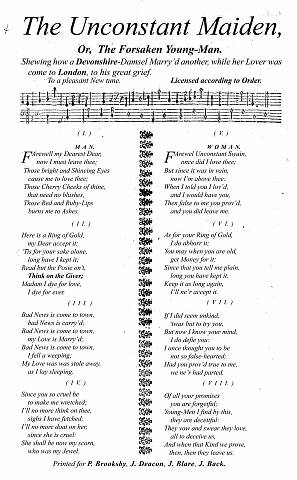 The Unconstant Maiden,
Or, The Forsaken Young-Man.
Shewing how a Devonshire-Damsel Marry'd another, while her Lover was
come to London, to his great grief.
To a pleasant New tune. Licensed according to Order.
(I.)
MAN.
FArewell my Dearest Dear,
now I must leave thee;
Those bright and Shineing Eyes
cause me to love thee;
Those Cherry Cheeks of thine,
that need no blushes,
Those Red and Ruby-Lips
burns me to Ashes.
(II.)
Here is a Ring of Gold,
my Dear accept it;
'Tis for your sake alone,
long have I kept it;
Read but the Posie on't,
Think on the Giver;
Madam I dye for love,
I dye for ever.
(III.)
Bad News is come to town,
bad News is carry'd;
Bad News is come to town,
my Love is Marry'd;
Bad News is come to town,
I fell a weeping;
My Love was was stole away,
as I lay sleeping.
(IV.)
Since you so cruel be
to make me wretched;
I'll no more think on thee,
sighs I have fetched;
I'll no more doat on her,
since she is cruel:
She shall be now my scorn,
who was my Jewel.
(V.)
WOMAN.
FArewel Unconstant Swain,
once did I love thee;
But since it was in vain,
now I'm above thee:
When I told you I lov'd,
and I would have you,
Then false to me you prov'd,
and you did leave me.
(VI.)
As for your Ring of Gold,
I do abhorr it;
You may when you are old,
get Money for it;
Since that you tell me plain,
long you have kept it,
Keep it as long again,
I'll ne'r accept it.
(VII.)
If I did seem unkind,
'twas but to try you,
But now I know your mind,
I do defie you:
I once thought you to be
not so false-hearted;
Had you prov'd true to me,
we ne'r had parted.
(VIII.)
Of all your promises
you are forgetful;
Young-Men I find by this,
they are deceitful:
They vow and swear they love,
all to deceive us,
And when that Kind we prove,
then, then they leave us.
Printed for P. Brooksby, J. Deacon, J. Blare, J. Back.